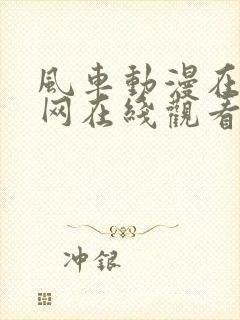 風車動漫在
网在綫觀看
冲銀